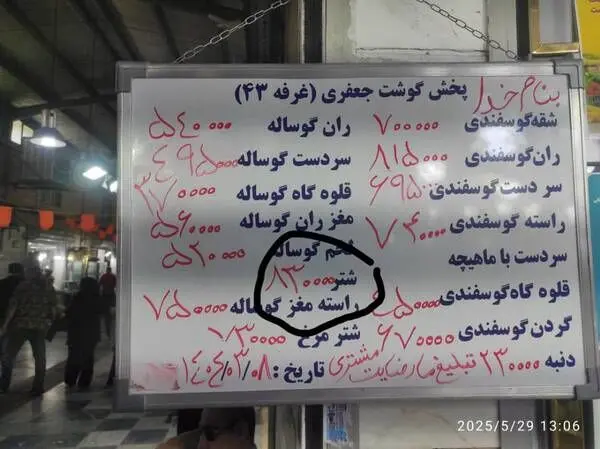 بنام خدا
پخش گوشت جعفری (غرفه ۴۳)
شقه گوسفندی ۷۰۰۰۰۰
ران گوساله ۵۴۰۰۰۰
ران گوسفندی ۸۱۵۰۰۰
سردست گوساله ۴۹۵۰۰۰
سر دست گوسفندی ۶۹۵۰۰۰
قلوه گاه گوساله ۳۷۰۰۰۰
راسته گوسفندی ۷۴۰۰۰۰
مغز ران گوساله ۵۶۰۰۰۰
سردست با ماهیچه
گوساله ۵۲۰۰۰۰
شتر ۸۳۰۰۰۰
قلوه گاه گوسفندی
راسته مغز گوساله ۷۵۰۰۰۰
گردن گوسفندی ۶۷۰۰۰۰
شتر مرغ
دنبه ۲۳۰۰۰۰ تبلیغ ما رضایت مشتری
تاریخ : ۱۴۰۴/۰۳/۰۸
2025/5/29 13:06